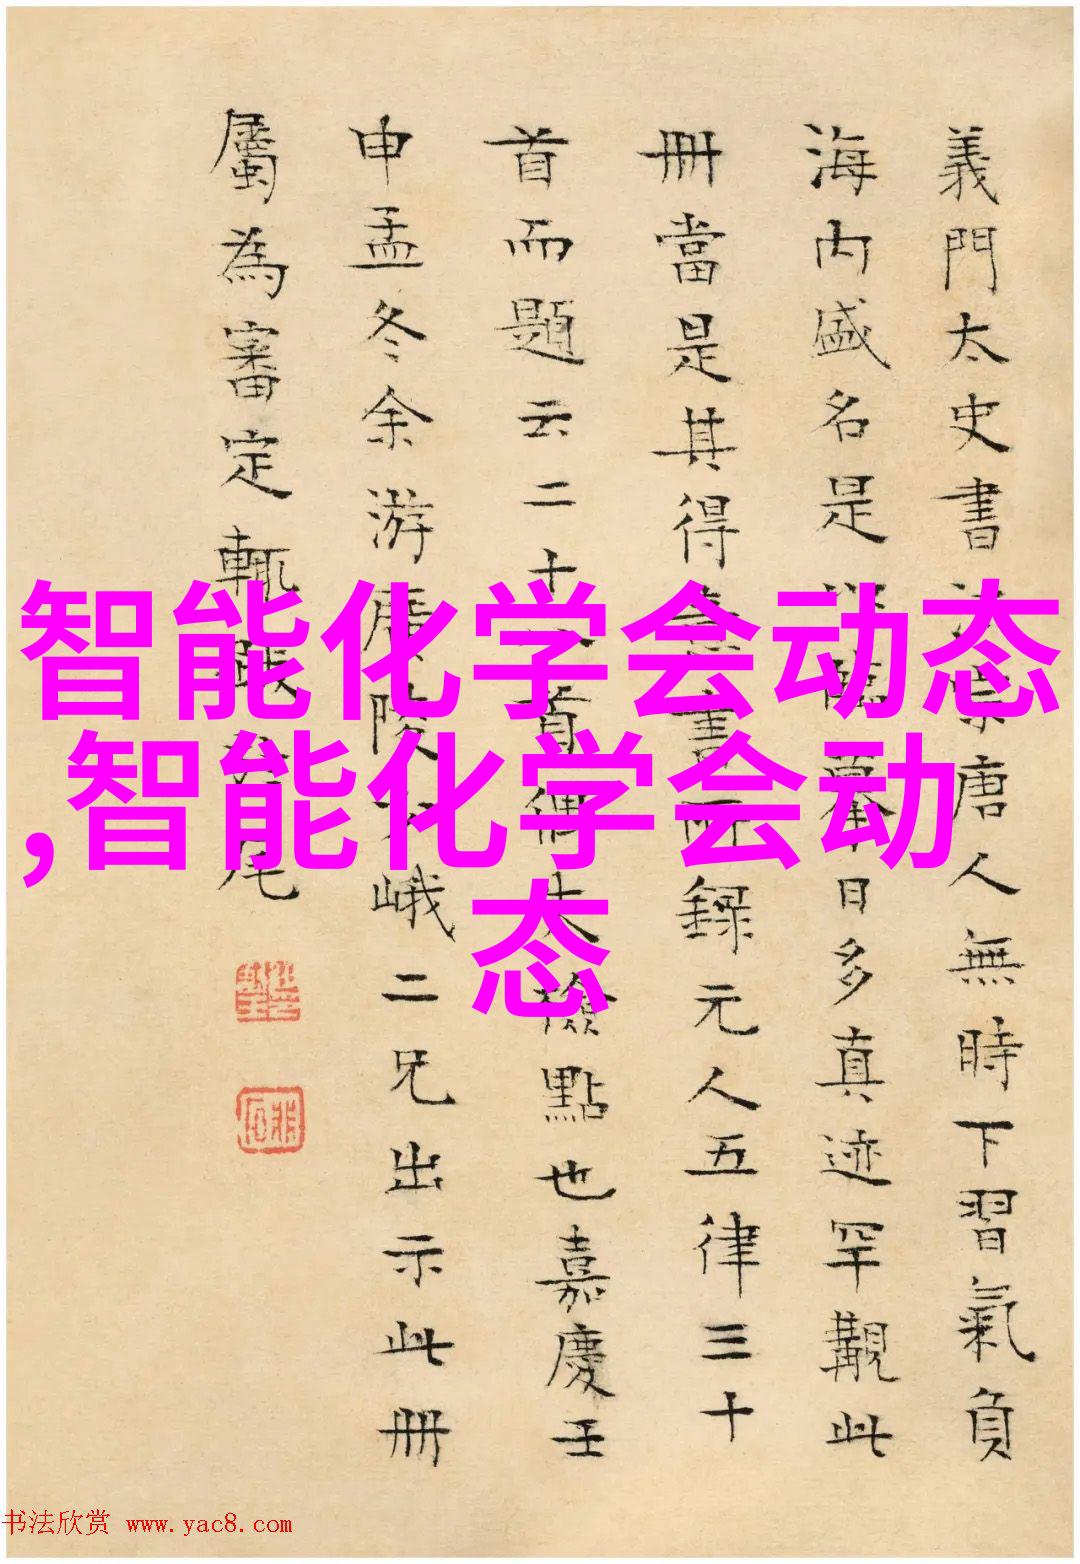 義門太史書法宗唐人無時下習氣負
海内盛名是以臨摹日多真迹罕覯此
冊當是其得意書而録元人五律三十
首而題云二十首偶失檢點也嘉慶壬
申孟冬余游廣陵峨二兄出示此冊
屬為審定輒跋於尾
智能化学会动态
,智能化学会动
态
书法欣赏 www.yac8.com